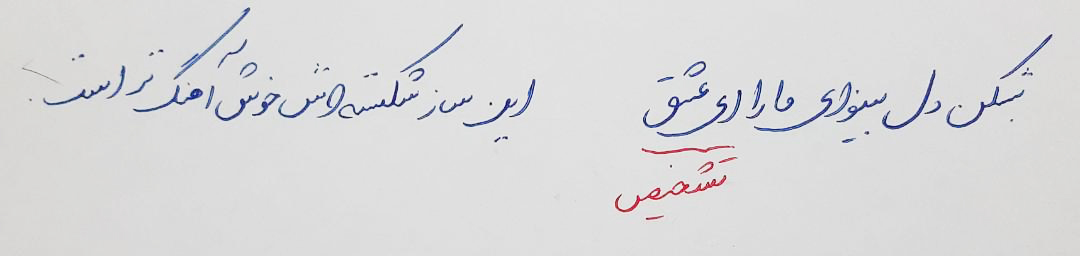 بشکن دل بینوای ما را ای عشق این ساز شکسته اش خوش آهنگ تر است.
تشخیص